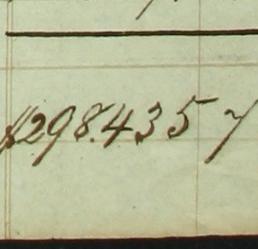 $298.435 7